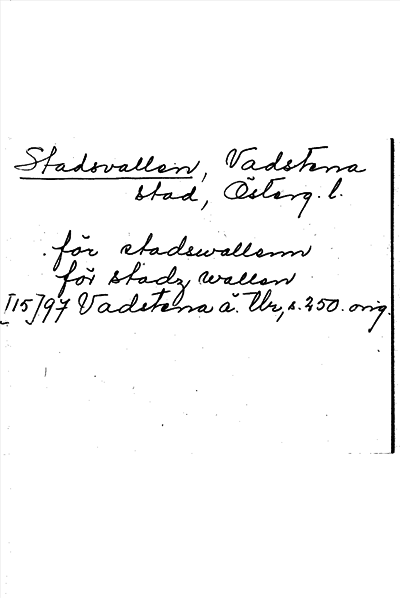 Stadsvallen, Vadstena
stad, Österg. l.
för stadswallenn
för stadz wallen
[15]97 Vadstena ä. Tb, s. 250. orig.